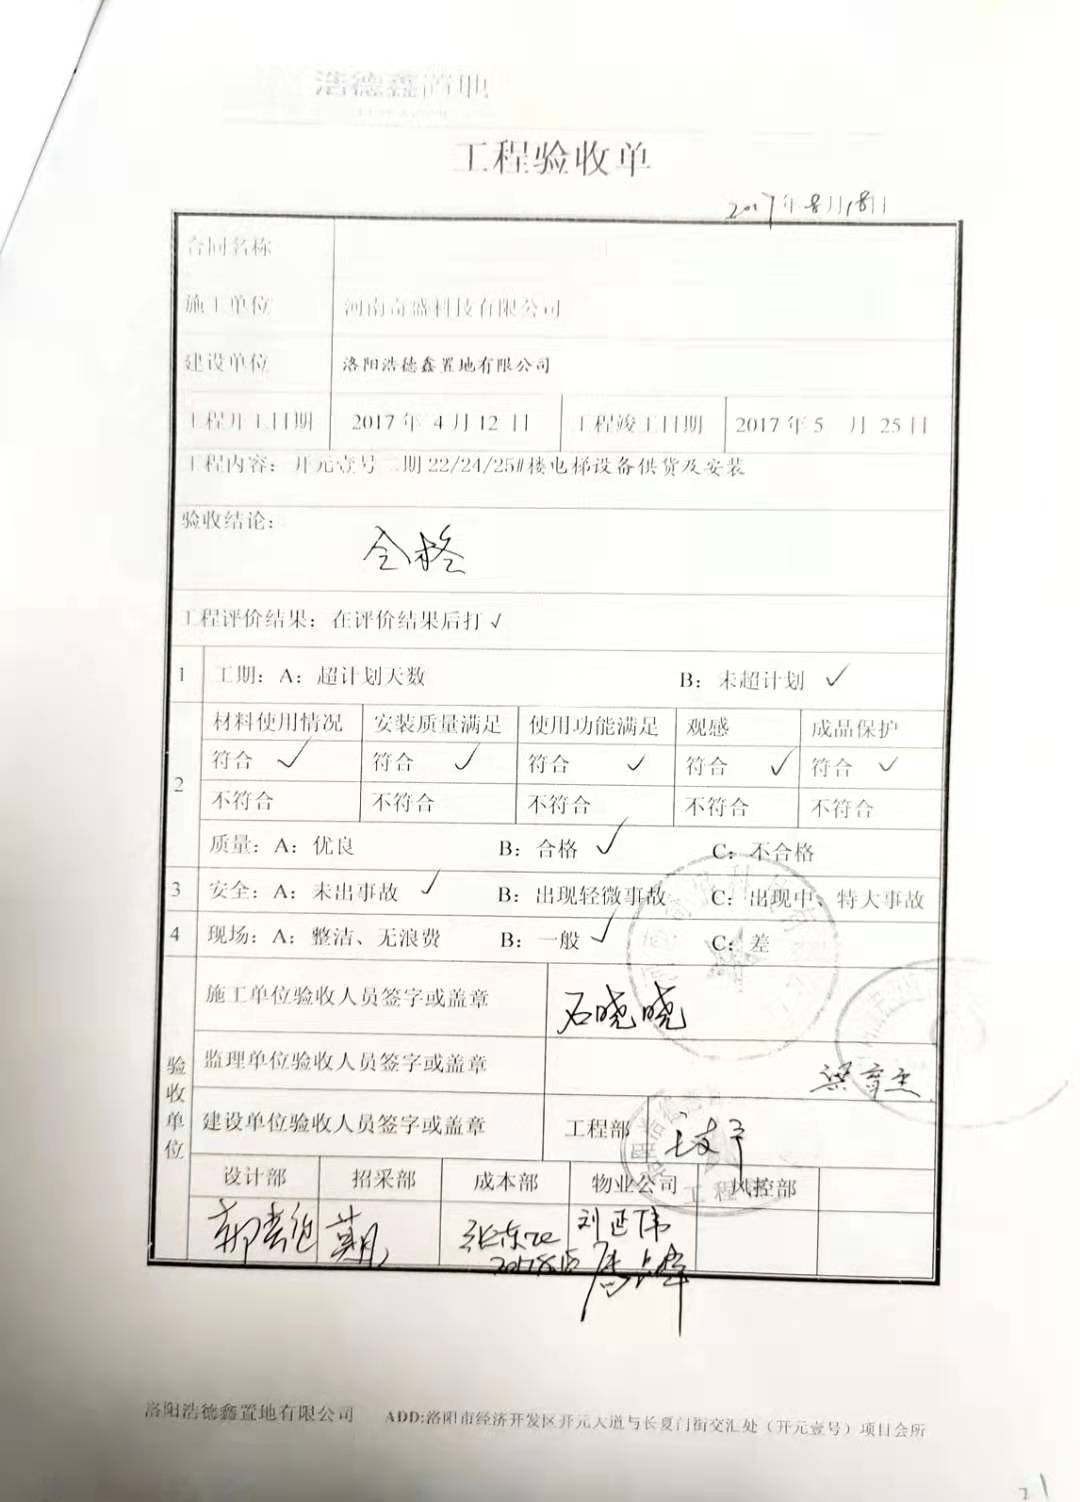 浩德鑫置地
工程验收单
2017年8月18日
合同名称
施工单位 河南奇盛科技有限公司
建设单位 洛阳浩德鑫置地有限公司
工程开工日期 2017 年 4 月 12 日 工程竣工日期 2017 年 5 月 25 日
工程内容：开元壹号二期 22/24/25#楼电梯设备供货及安装
验收结论：
合格
工程评价结果：在评价结果后打√
1 工期：A：超计划天数 B：未超计划 √
材料使用情况 安装质量满足 使用功能满足 观感 成品保护
符合 √ 符合 √ 符合 √ 符合 √ 符合 √
2
不符合 不符合 不符合 不符合 不符合
质量：A：优良 B：合格 √ C：不合格
3 安全：A：未出事故 √ B：出现轻微事故 C：出现中、特大事故
4 现场：A：整洁、无浪费 B：一般 √ C：差
施工单位验收人员签字或盖章 石晓晓
监理单位验收人员签字或盖章 梁育杰
验收单位
建设单位验收人员签字或盖章 工程部
设计部 招采部 成本部 物业公司 风控部
刘延伟
洛阳浩德鑫置地有限公司 ADD:洛阳市经济开发区开元大道与长夏门街交汇处（开元壹号）项目会所
21